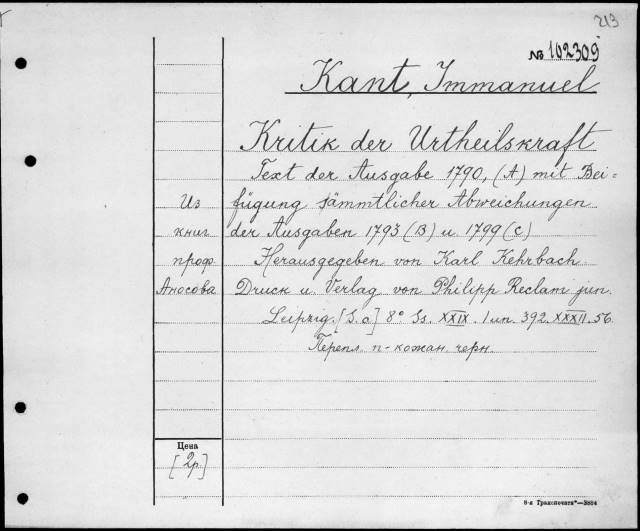 213
№ 102309
Kant, Immanuel
Kritik der Urtheilskraft
Text der Ausgabe 1790, (A) mit Bei=
fügung sämmtlicher Abweichungen
der Ausgaben 1793 (B) u. 1799 (C)
Herausgegeben von Karl Kehrbach
Druck u. Verlag von Philipp Reclam jun.
Leipzig. [S. a] 8° Ss. XXIX. 1 un. 392. XXXII. 56.
Перепл. п-кожан. черн.
Из
книг
проф.
Аносова
Цена
[2р.]
6-я Транспечать"—3554